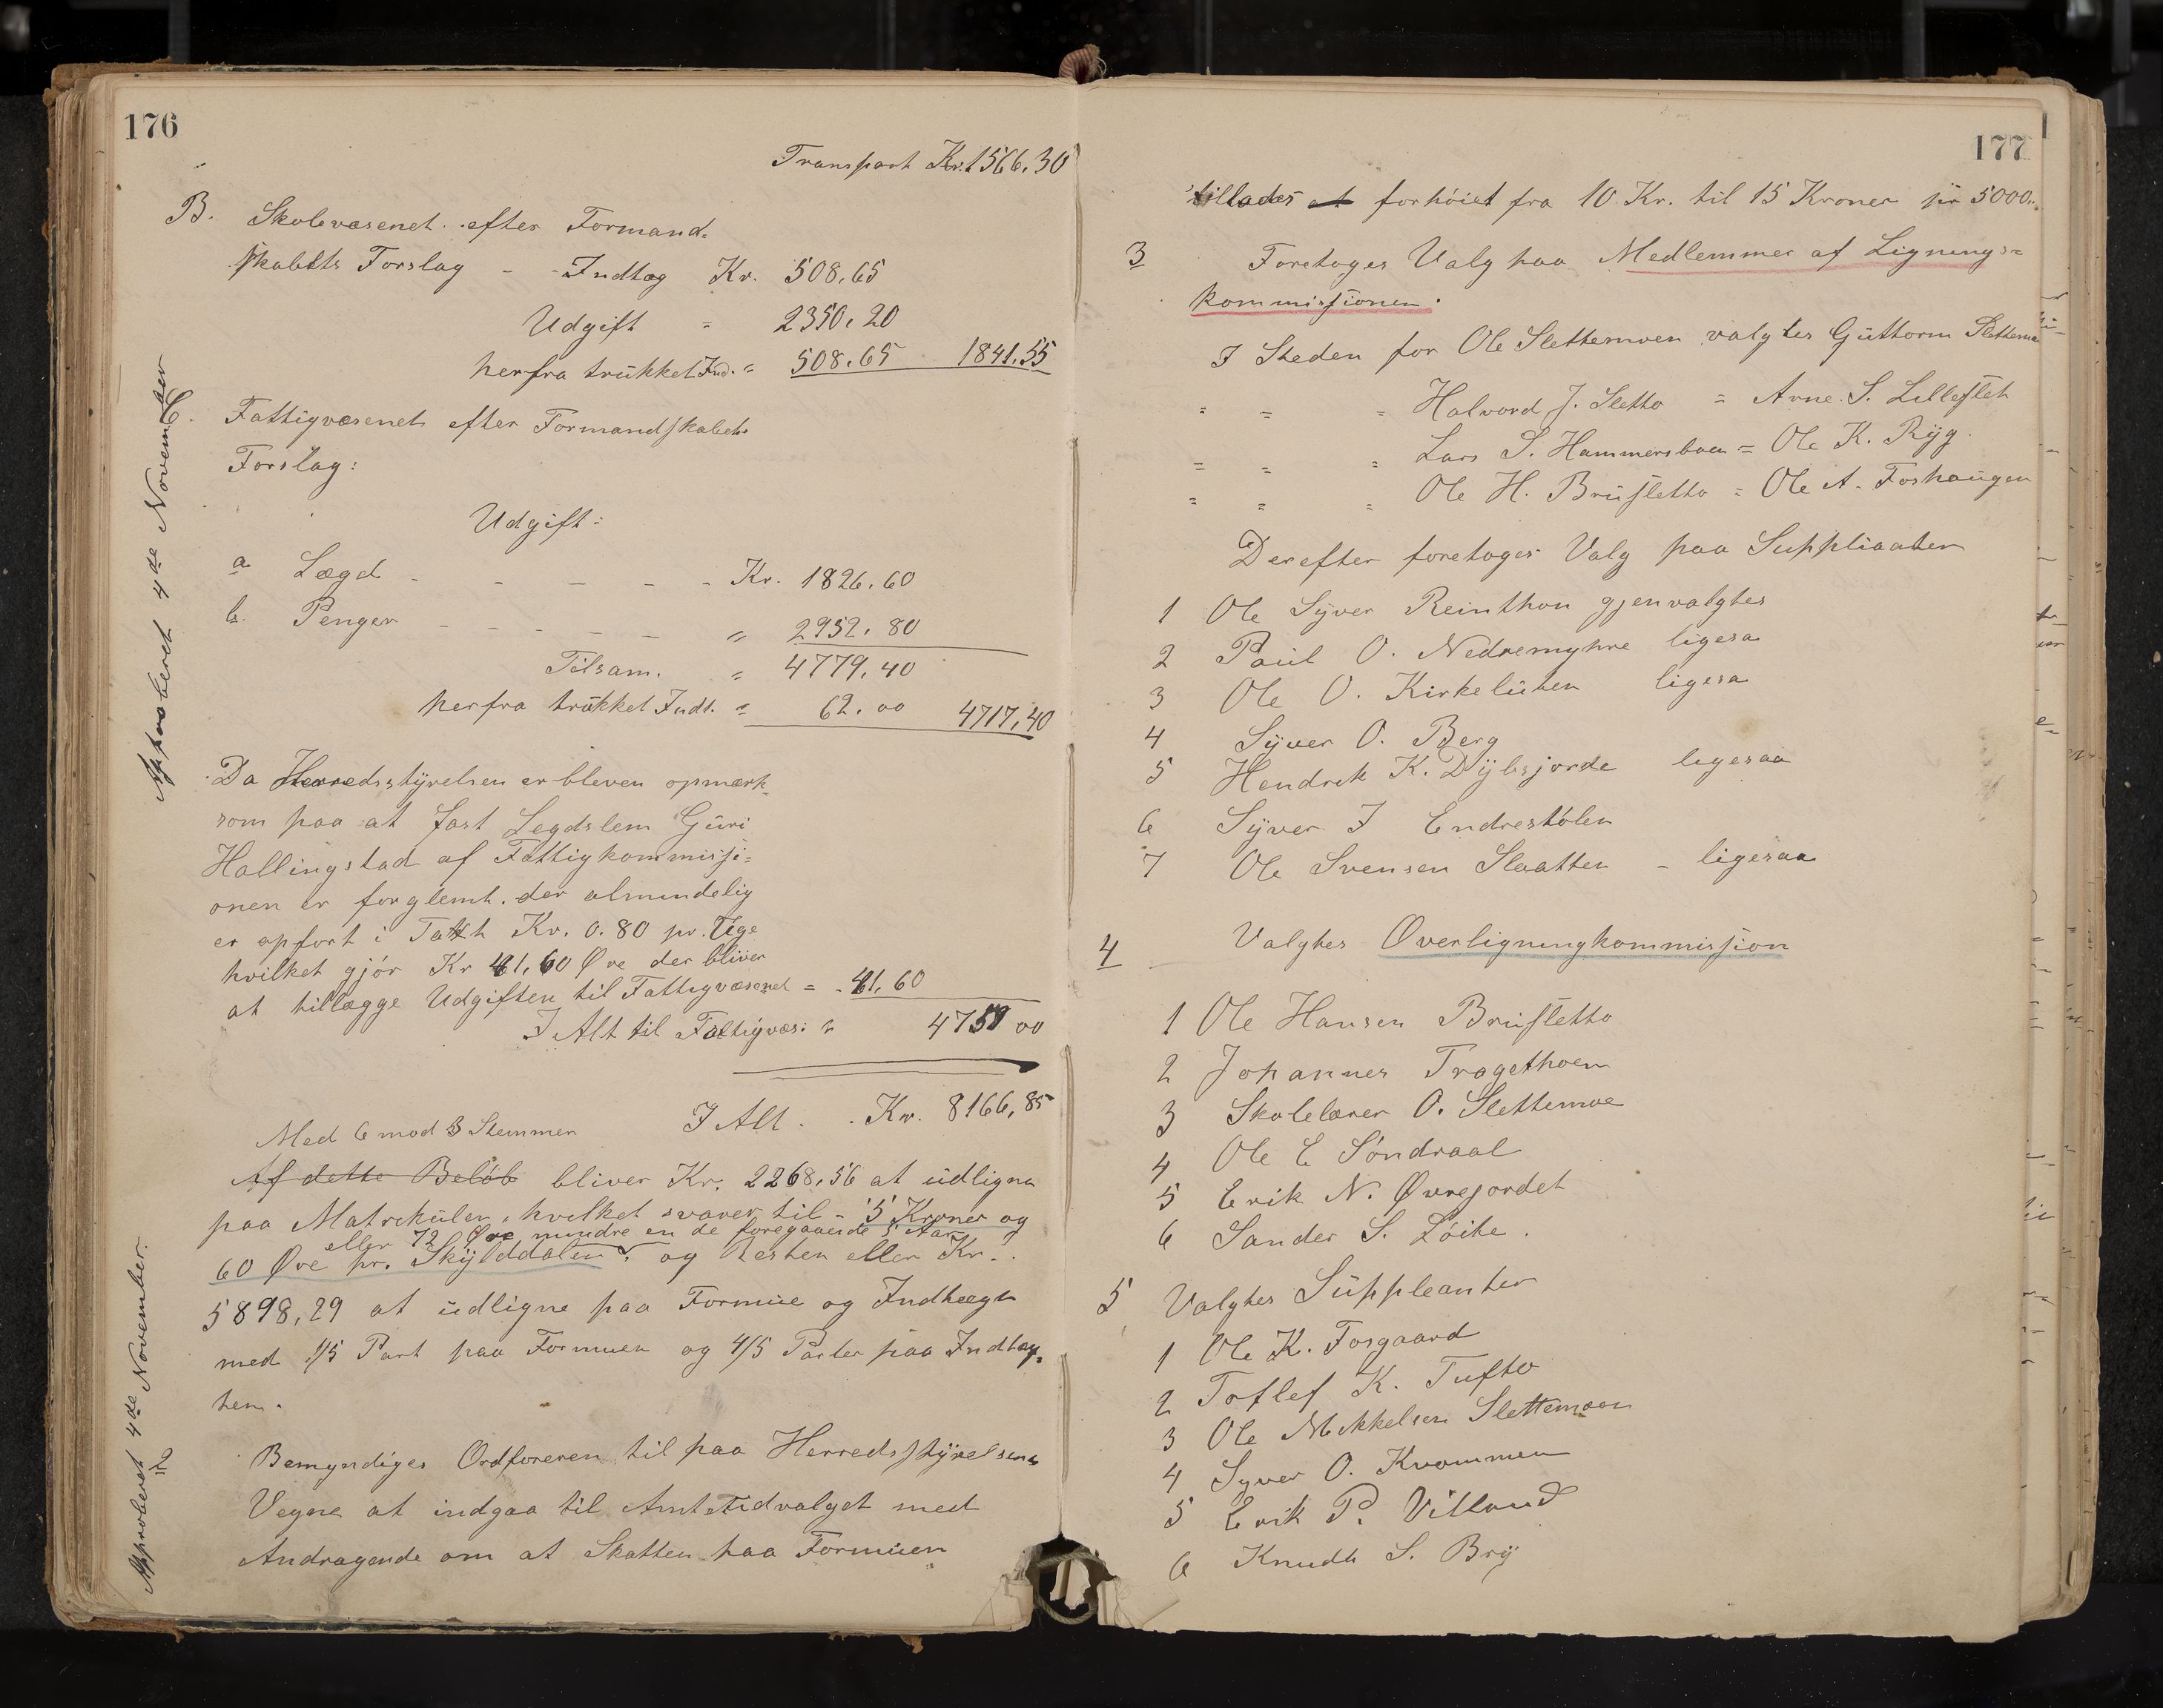 176
Transport Kr. 1566.30
B. Skolevæsenet efter Formand-
skabets Forslag - - Indtæg Kr. 508.65
Udgift " 2350.20
herfra trukket Ind. " 508.65 1841.55
C. Fattigvæsenet efter Formandskabets
Forslag:
Udgift:
a Lægd - - - - - Kr. 1826.60
b. Penger - - - - - " 2952.80
Tilsam. " 4779.40
herfra trukket Indt. " 62.00 4717.40
Approberet 4de November
Da Herredsstyrelsen er bleven opmærk-
som paa at fast Legdslem Guri
Hallingstad af Fattigkommissi-
onen er forglemt. der almindelig
er opført i Taxt Kr. 0.80 pr. Uge
hvilket gjør Kr 41.60 Øre der bliver
at tillægge Udgiften til Fattigvæsenet = - 41.60
I Alt til Fattigvæs: " 4759 00
I Alt . . Kr. 8166,85
Med 6 mod 3 Stemmer
Af dette Beløb bliver Kr. 2268,56 at udligne
paa Matrikulen, hvilket svarer til - 5 Kroner og
eller 72 Øre mindre en de foregaaende 5 Aar
60 Øre pr. Skylddalen og Resten eller Kr. .
5898,29 at udligne paa Formue og Indtægt
med 1/5 Part paa Formuen og 4/5 Parter paa Indtæg-
ten.
Approberet 4de November.
2 Bemyndiges Ordføreren til paa Herredsstyrelsens
Vegne at indgaa til Amtetidvalget med
Andragende om at Skatten paa Formuen
177
tillades at forhöiet fra 10 Kr. til 15 Kroner pr 5000.
3 Foretoges Valg paa Medlemmer af Lignings-
kommissionen.
I Steden for Ole Slettemoen valgtes Guttorm Slettemo
" " " Halvord J. Sletto = Arne S. Lilleslet
" " " Lars S. Hammersboen = Ole K. Ryg
" " " Ole H. Brusletto = Ole A. Foshaugen
Derefter foretoges Valg paa Suppliaater
1 Ole Syver Reinthon gjenvalgtes
2 Paul O. Nedremyhre ligesa
3 Ole O. Kirkeluten ligesa
4 Syver O. Berg
5 Hendrik K. Dybsjorde ligesaa
6 Syver I Endrestölen
7 Ole Svensen Slaatten - ligesaa
4 Valgtes Overligningkommission
1 Ole Hansen Brusletto
2 Johannes Tragethoen
3 Skolelærer O. Slettemoe
4 Ole E Söndraal
5 Erik N. Øvrejordet
6 Sander S. Löite.
5 Valgtes Suppleanter
1 Ole K. Fosgaard
2 Toflef K. Tufto
3 Ole Mikkelsen Slettemoen
4 Syver O. Kvommen
5 Erik P. Villand
6 Knudt S. Bry